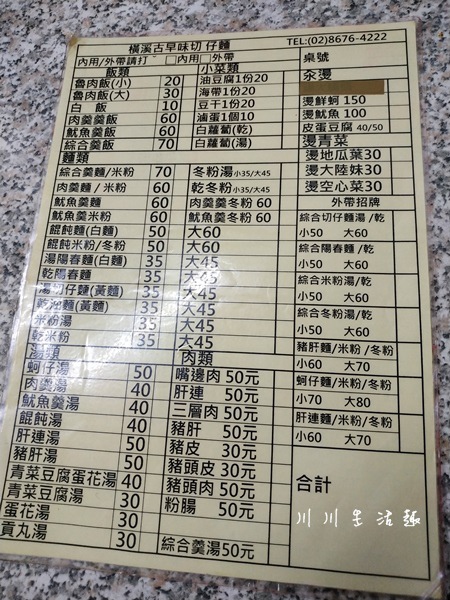 橫溪古早味切仔麵 TEL:(02)8676-4222
內用/外帶請打ˇ □內用□外帶 桌號
飯類 小菜類
魯肉飯(小) 20 油豆腐1份20
魯肉飯(大) 30 海帶1份20
白 飯 10 豆干1份20
肉羹羹飯 60 滷蛋1個10
魷魚羹飯 60 白蘿蔔(乾)
綜合羹飯 70 白蘿蔔(湯)
麵類
綜合羹麵/米粉 70 冬粉湯小35/大45
肉羹麵/米粉 60 乾冬粉小35/大45
魷魚羹麵 60 肉羹羹冬粉 60
魷魚羹米粉 60 魷魚羹冬粉 60
餛飩麵(白麵) 50 大60
餛飩米粉/冬粉 50 大60
湯陽春麵(白麵) 35 大45
乾陽春麵 35 大45
湯切仔麵(黃麵) 35 大45
乾油麵(黃麵) 35 大45
米粉湯 35 大45
乾米粉 35 大45
湯類 肉類
蚵仔湯 50 嘴邊肉 50元
肉羹湯 40 肝連 50元
魷魚羹湯 40 三層肉 50元
餛飩湯 40 豬肝 50元
肝連湯 50 豬皮 30元
豬肝湯 50 豬頭皮 30元
青菜豆腐蛋花湯 40 豬頭肉 50元
青菜豆腐湯 30 粉腸 50元
蛋花湯 30
貢丸湯 30 綜合羹湯50元
汆燙
燙鮮蚵 150
燙魷魚 100
皮蛋豆腐 40/50
燙青菜
燙地瓜葉30
燙大陸妹30
燙空心菜30
外帶招牌
綜合切仔麵湯/乾
小50 大60
綜合陽春麵湯/乾
小50 大60
綜合米粉湯/乾
小50 大60
綜合冬粉湯/乾
小50 大60
豬肝麵/米粉/冬粉
小60 大70
蚵仔麵/米粉/冬粉
小70 大80
肝連麵/米粉/冬粉
小60 大70
合計
川川生活趣